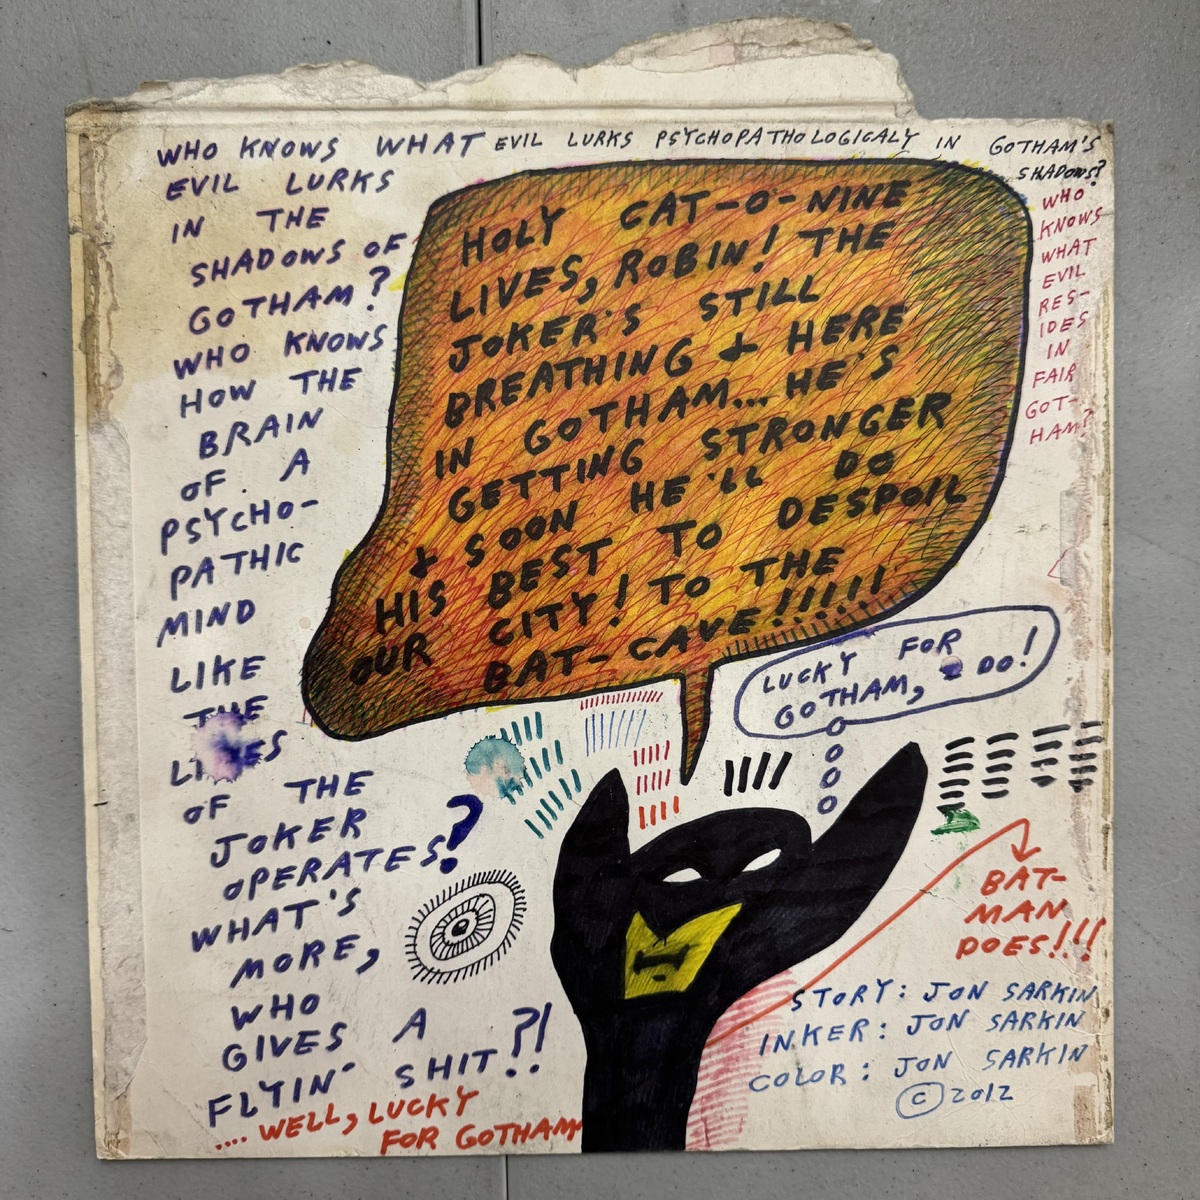 WHO KNOWS WHAT EVIL LURKS PSYCHOPATHOLOGICALY IN GOTHAM'S
SHADOWS?
EVIL LURKS
IN THE
SHADOWS OF
GOTHAM?
WHO KNOWS
HOW THE
BRAIN
OF A
PSYCHO-
PATHIC
MIND
LIKE
THE
OF THE
JOKER
OPERATES?
WHAT'S
MORE,
WHO
GIVES A
FLYIN' SHIT?!
.... WELL, LUCKY
FOR GOTHAM
HOLY CAT-O-NINE
LIVES, ROBIN! THE
JOKER'S STILL
BREATHING & HERE
IN GOTHAM... HE'S
GETTING STRONGER
& SOON HE'LL DO
HIS BEST TO DESPOIL
OUR CITY! TO THE
BAT-CAVE!!!!!
WHO
KNOWS
WHAT
EVIL
RES-
IDES
IN
FAIR
GOT-
HAM?
LUCKY FOR
GOTHAM, I DO!
BAT-
MAN
DOES!!!
STORY: JON SARKIN
INKER: JON SARKIN
COLOR: JON SARKIN
© 2012